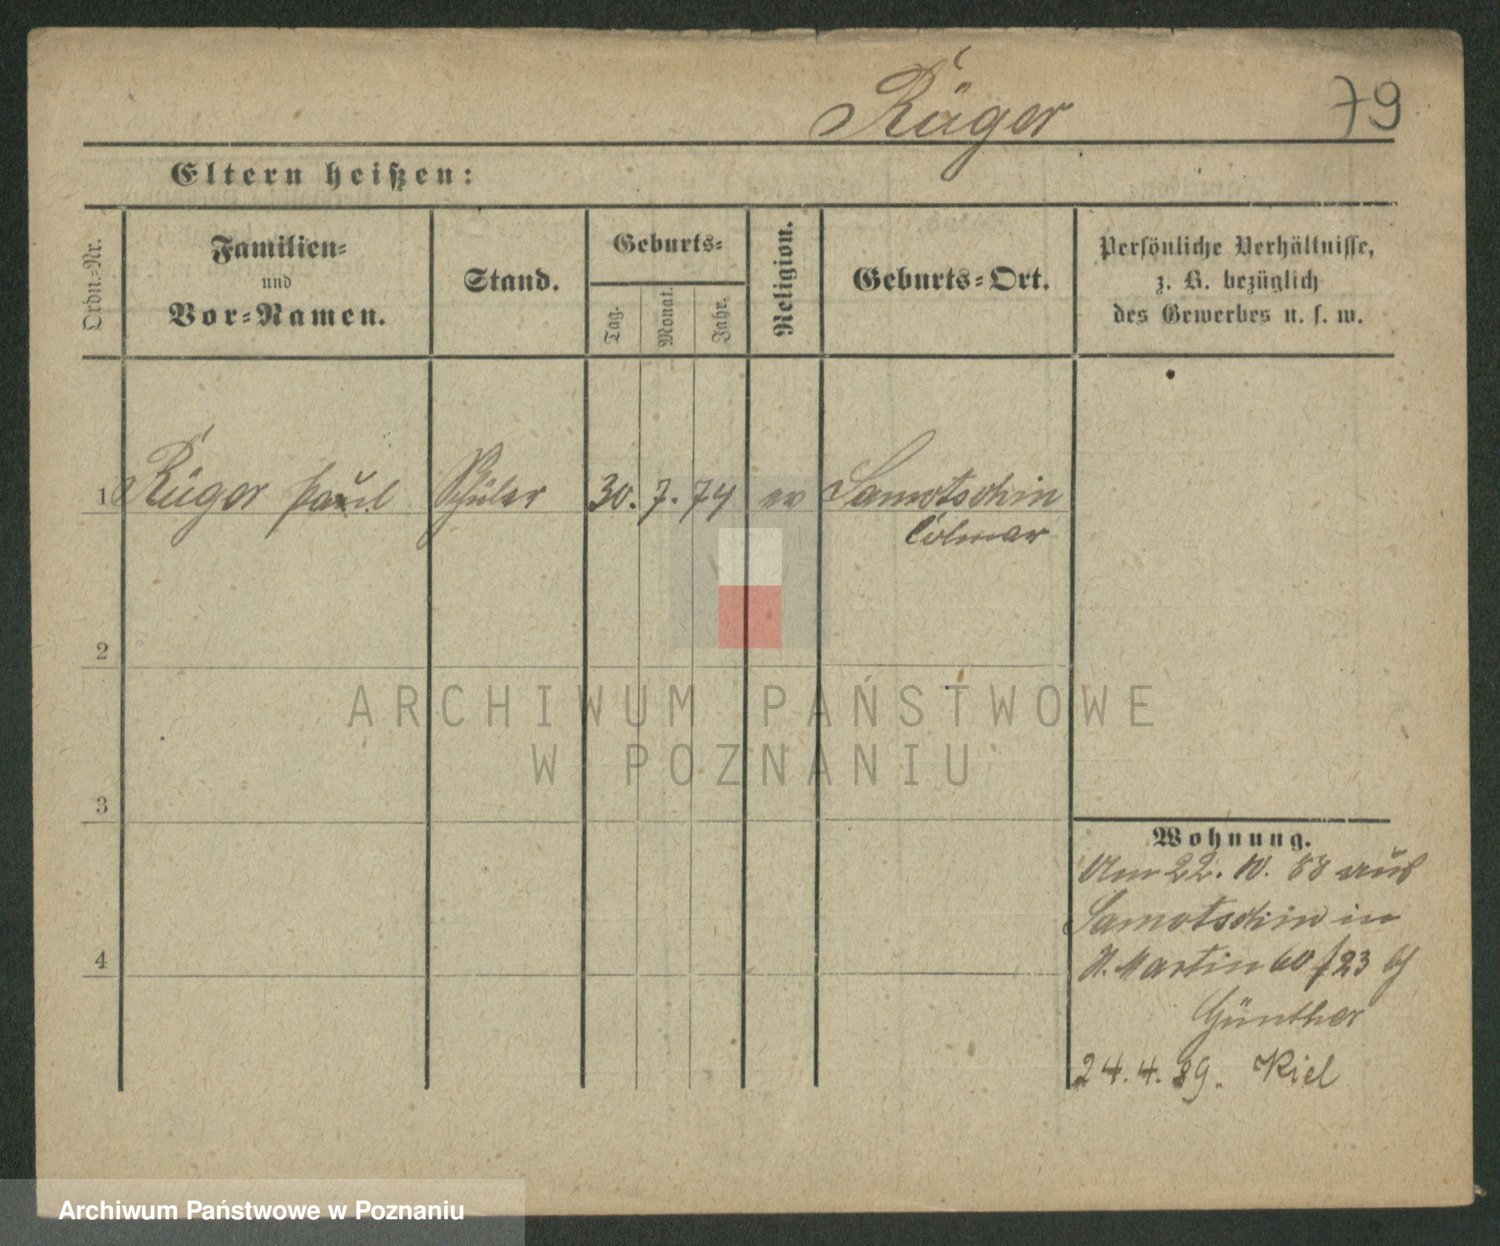 Rüger 79
Eltern heißen:
Ordn.-Nr.
Familien-
und
Vor-Namen.
Stand.
Geburts-
Tag.
Monat.
Jahr.
Religion.
Geburts-Ort.
Persönliche Verhältnisse,
z. B. bezüglich
des Gewerbes u. s. w.
1 Rüger Paul Schüler 30. 7. 74 ev Samotschin
Colmar
2
3
4
Wohnung.
Am 22. 10. 88 aus
Samotschin in
St. Martin 60/23 b/
Günther
24. 4. 89. Kiel
ARCHIWUM PAŃSTWOWE
W POZNANIU
Archiwum Państwowe w Poznaniu